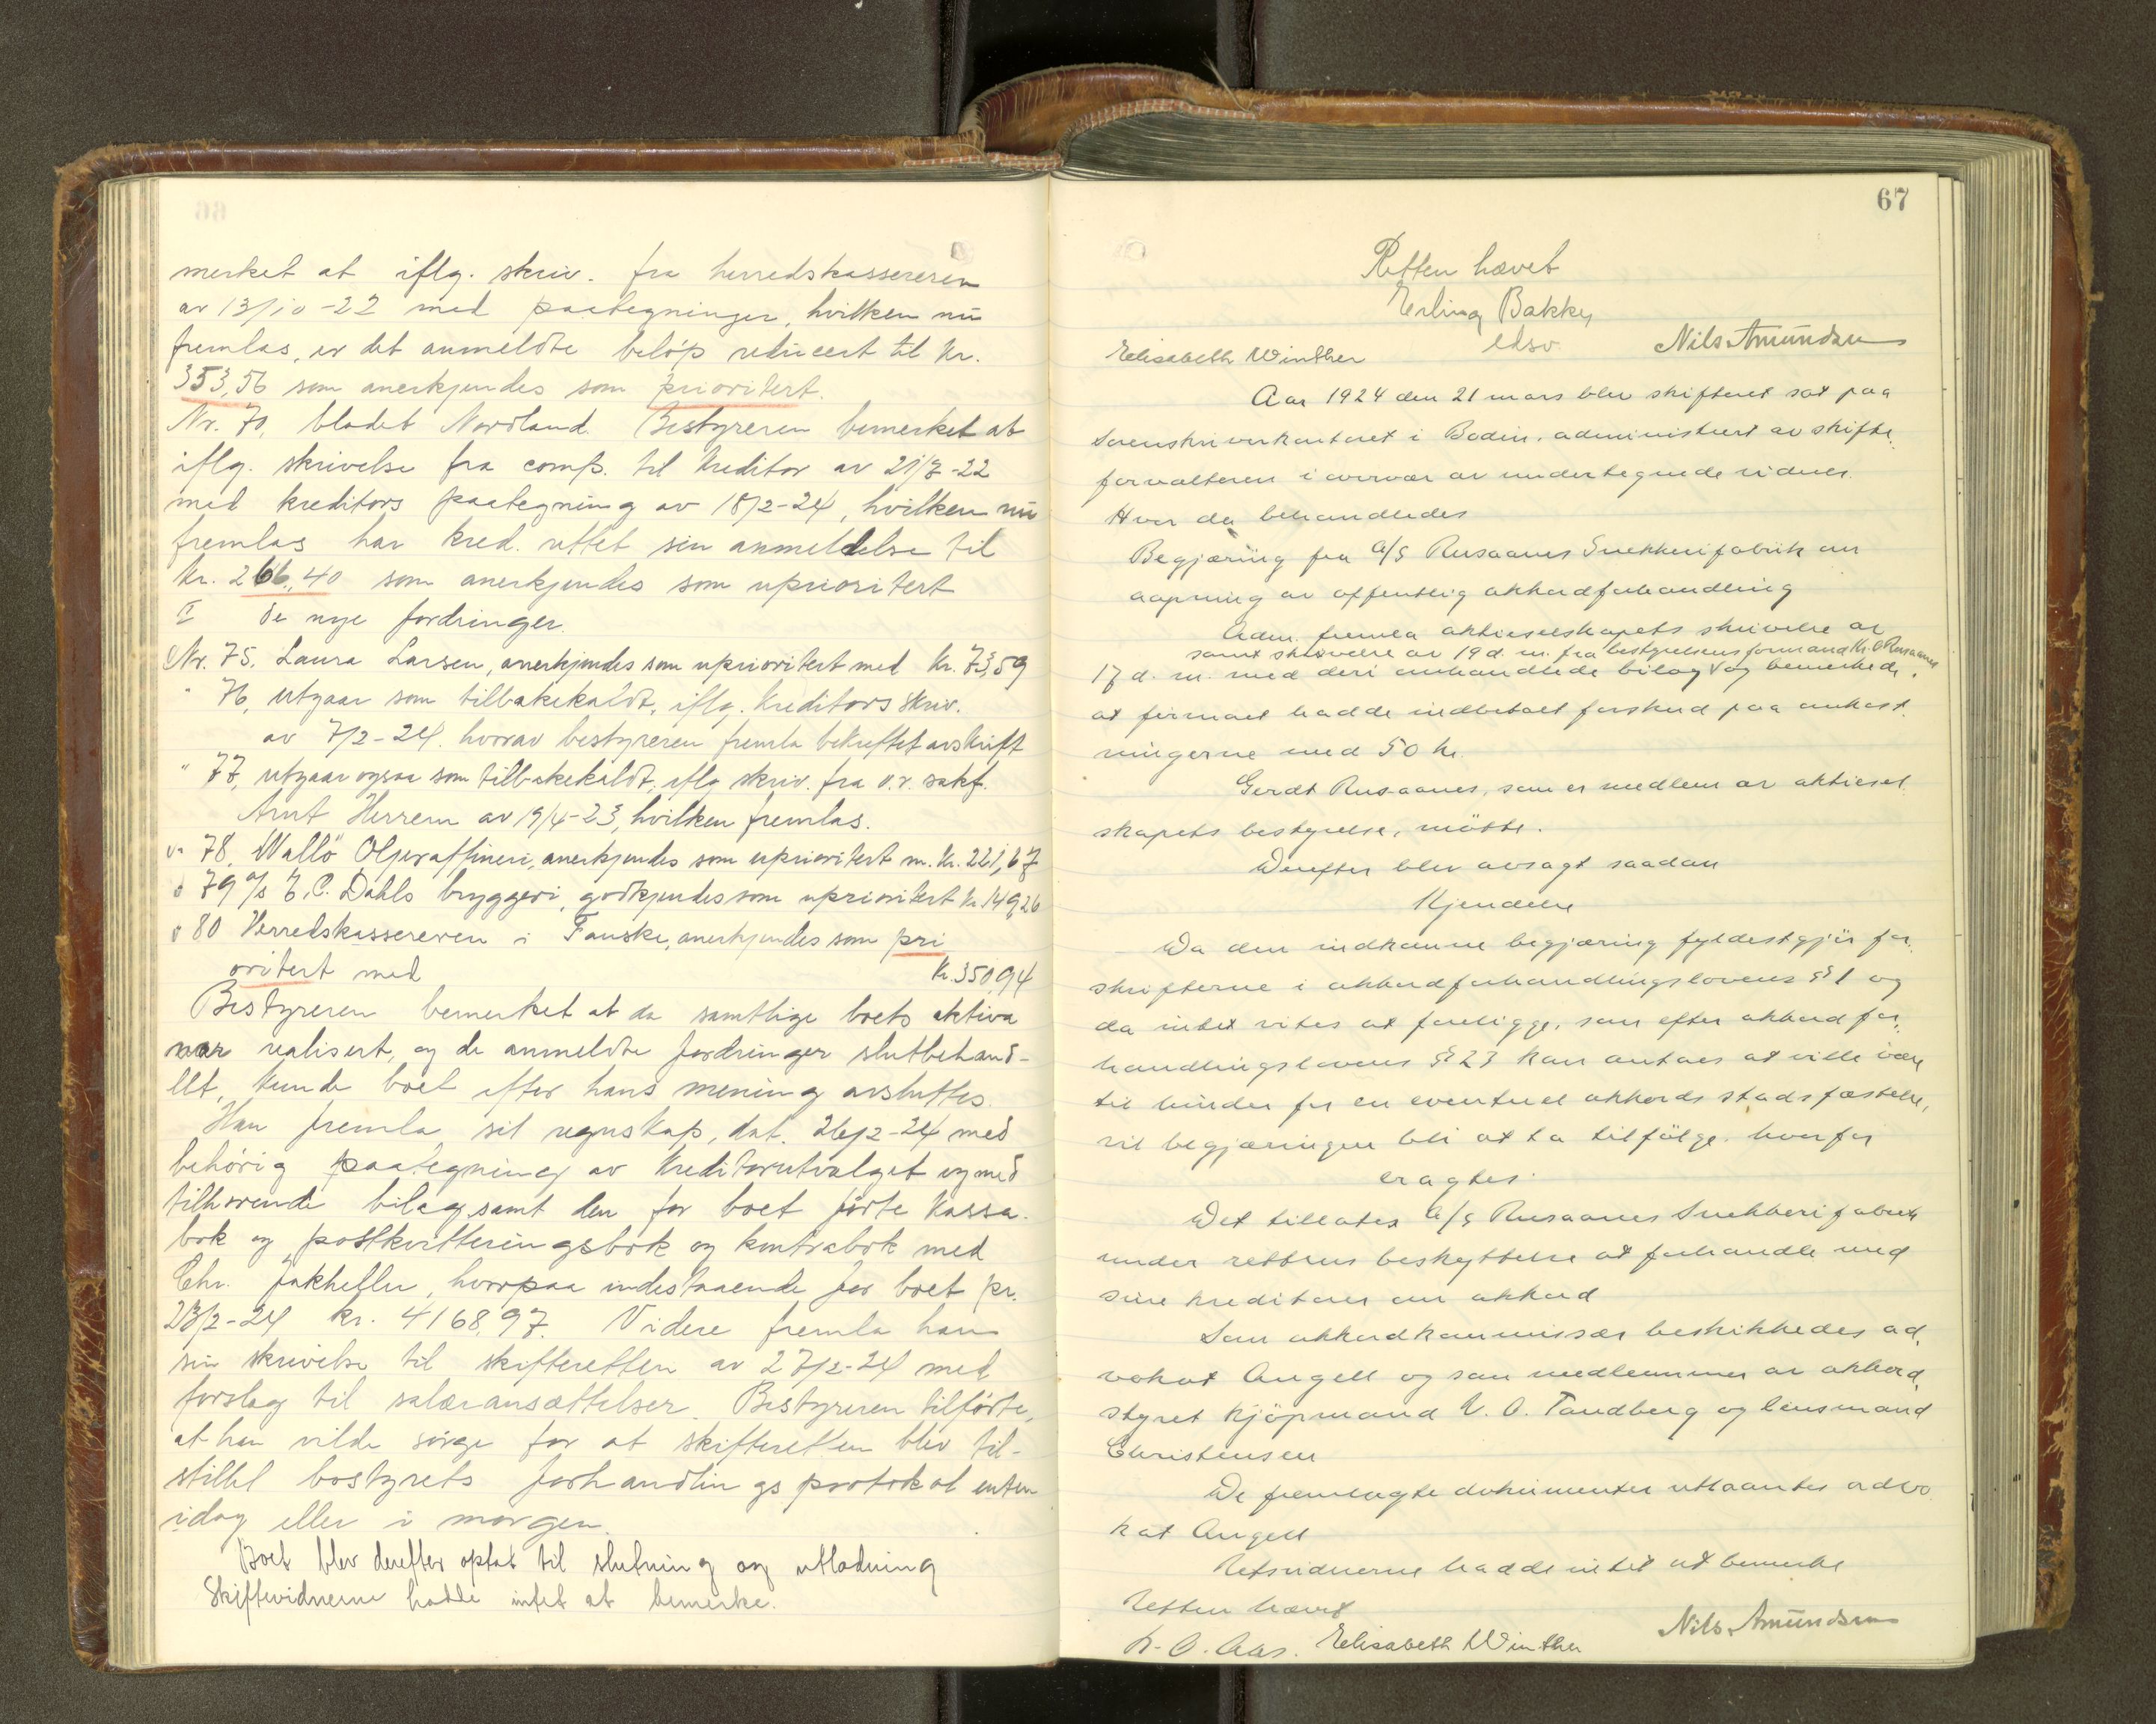 merket at iflg. skriv. fra herredskassereren
av 13/10-22 med paategninger, hvilken nu
fremlas, er det anmeldte beløp reducert til kr.
353,56 som anerkjendes som prioritert.
Nr. 70, bladet Nordland. Bestyreren bemerket at
iflg. skrivelse fra comp. til kreditor av 21/7-22
med kreditors paategning av 18/2-24, hvilken nu
fremlas har kred. rettet sin anmeldelse til
kr. 266,40 som anerkjendes som uprioritert
II de nye fordringer.
Nr. 75, Laura Larsen, anerkjendes som uprioritert med kr. 73,59
" 76, utgaar som tilbakekaldt, iflg. kreditors skriv.
av 7/2-24. hvorav bestyreren fremla bekræftet avskrift
" 77, utgaar ogsaa som tilbakekaldt, iflg skriv. fra o.r. sakf.
Arnt Herrem av 19/4-23, hvilken fremlas.
" 78, Wallö Oljeraffineri, anerkjendes som uprioritert m. kr. 221,67
" 79 A/s E. C. Dahls bryggeri, godkjendes som uprioritert kr. 149,26
" 80 Herredskassereren i Fauske, anerkjendes som pri
oritert med kr. 350,94
Bestyreren bemerket at da samtlige boets aktiva
var realisert, og de anmeldte fordringer slutbehand-
let, kunde boet efter hans mening avsluttes.
Han fremla sit regnskap, dat. 26/2-24 med
behørig paategning av kreditorutvalget og med
tilhørende bilag samt den for boet førte kassa-
bok og postkvitteringsbok og kontrabok med
Chr. Jakhelln, hvorpaa indestaaende for boet pr.
23/2-24 kr. 4168,97. Videre fremla han
sin skrivelse til skifteretten av 27/2-24 med
forslag til salæransættelser. Bestyreren tilførte,
at han vilde sørge for at skifteretten blev til-
stillet bostyrets forhandlingsprotokol enten
idag eller i morgen.
Boet blev derefter optat til slutning og utlodning
Skiftevidnerne hadde intet at bemerke.
67
Retten hævet
Erling Bakke
edsv.
Elisabeth Winther Nils Amundsen
Aar 1924 den 21 mars blev skifteret sat paa
Sorenskriverkontoret i Bodin, administrert av skifte-
forvalteren i overvær av undertegnede vidner.
Hvor da behandledes
Begjæring fra A/S Rusaanes Snekkerifabrik om
aapning av offentlig akkordforhandling
Adm. fremla aktieselskapets skrivelse av
samt skrivelse av 19 d. m. fra bestyrelsens formand Kr. O Rusaanes
17 d. m. med deri omhandlede bilag og bemerkede,
at firmaet hadde indbetalt forskud paa omkost-
ningerne med 50 kr.
Gerdt Rusaanes, som er medlem av aktiesel-
skapets bestyrelse, møtte.
Derefter blev avsagt saadan
Kjendelse
Da den indkomne begjæring fyldestgjør for-
skrifterne i akkordforhandlingslovens § 1 og
da intet vites at foreligge, som efter akkordfor-
handlingslovens § 23 kan antaes at ville være
til hinder for en eventuel akkords stadfæstelse,
vil begjæringen bli at ta tilfølge, hvorfor
eragtes:
Det tillates A/S Rusaanes Snekkerifabrik
under rettens beskyttelse at forhandle med
sine kreditorer om akkord
Som akkordkommissær beskikkedes ad-
vokat Angell og som medlemmer av akkord-
styret kjøpmand U. O. Tandberg og lensmand
Christensen
De fremlagte dokumenter utlaantes advo
kat Angell
Retsvidnerne hadde intet at bemerke
Retten hævet
K. O. Aas. Elisabeth Winther Nils Amundsen